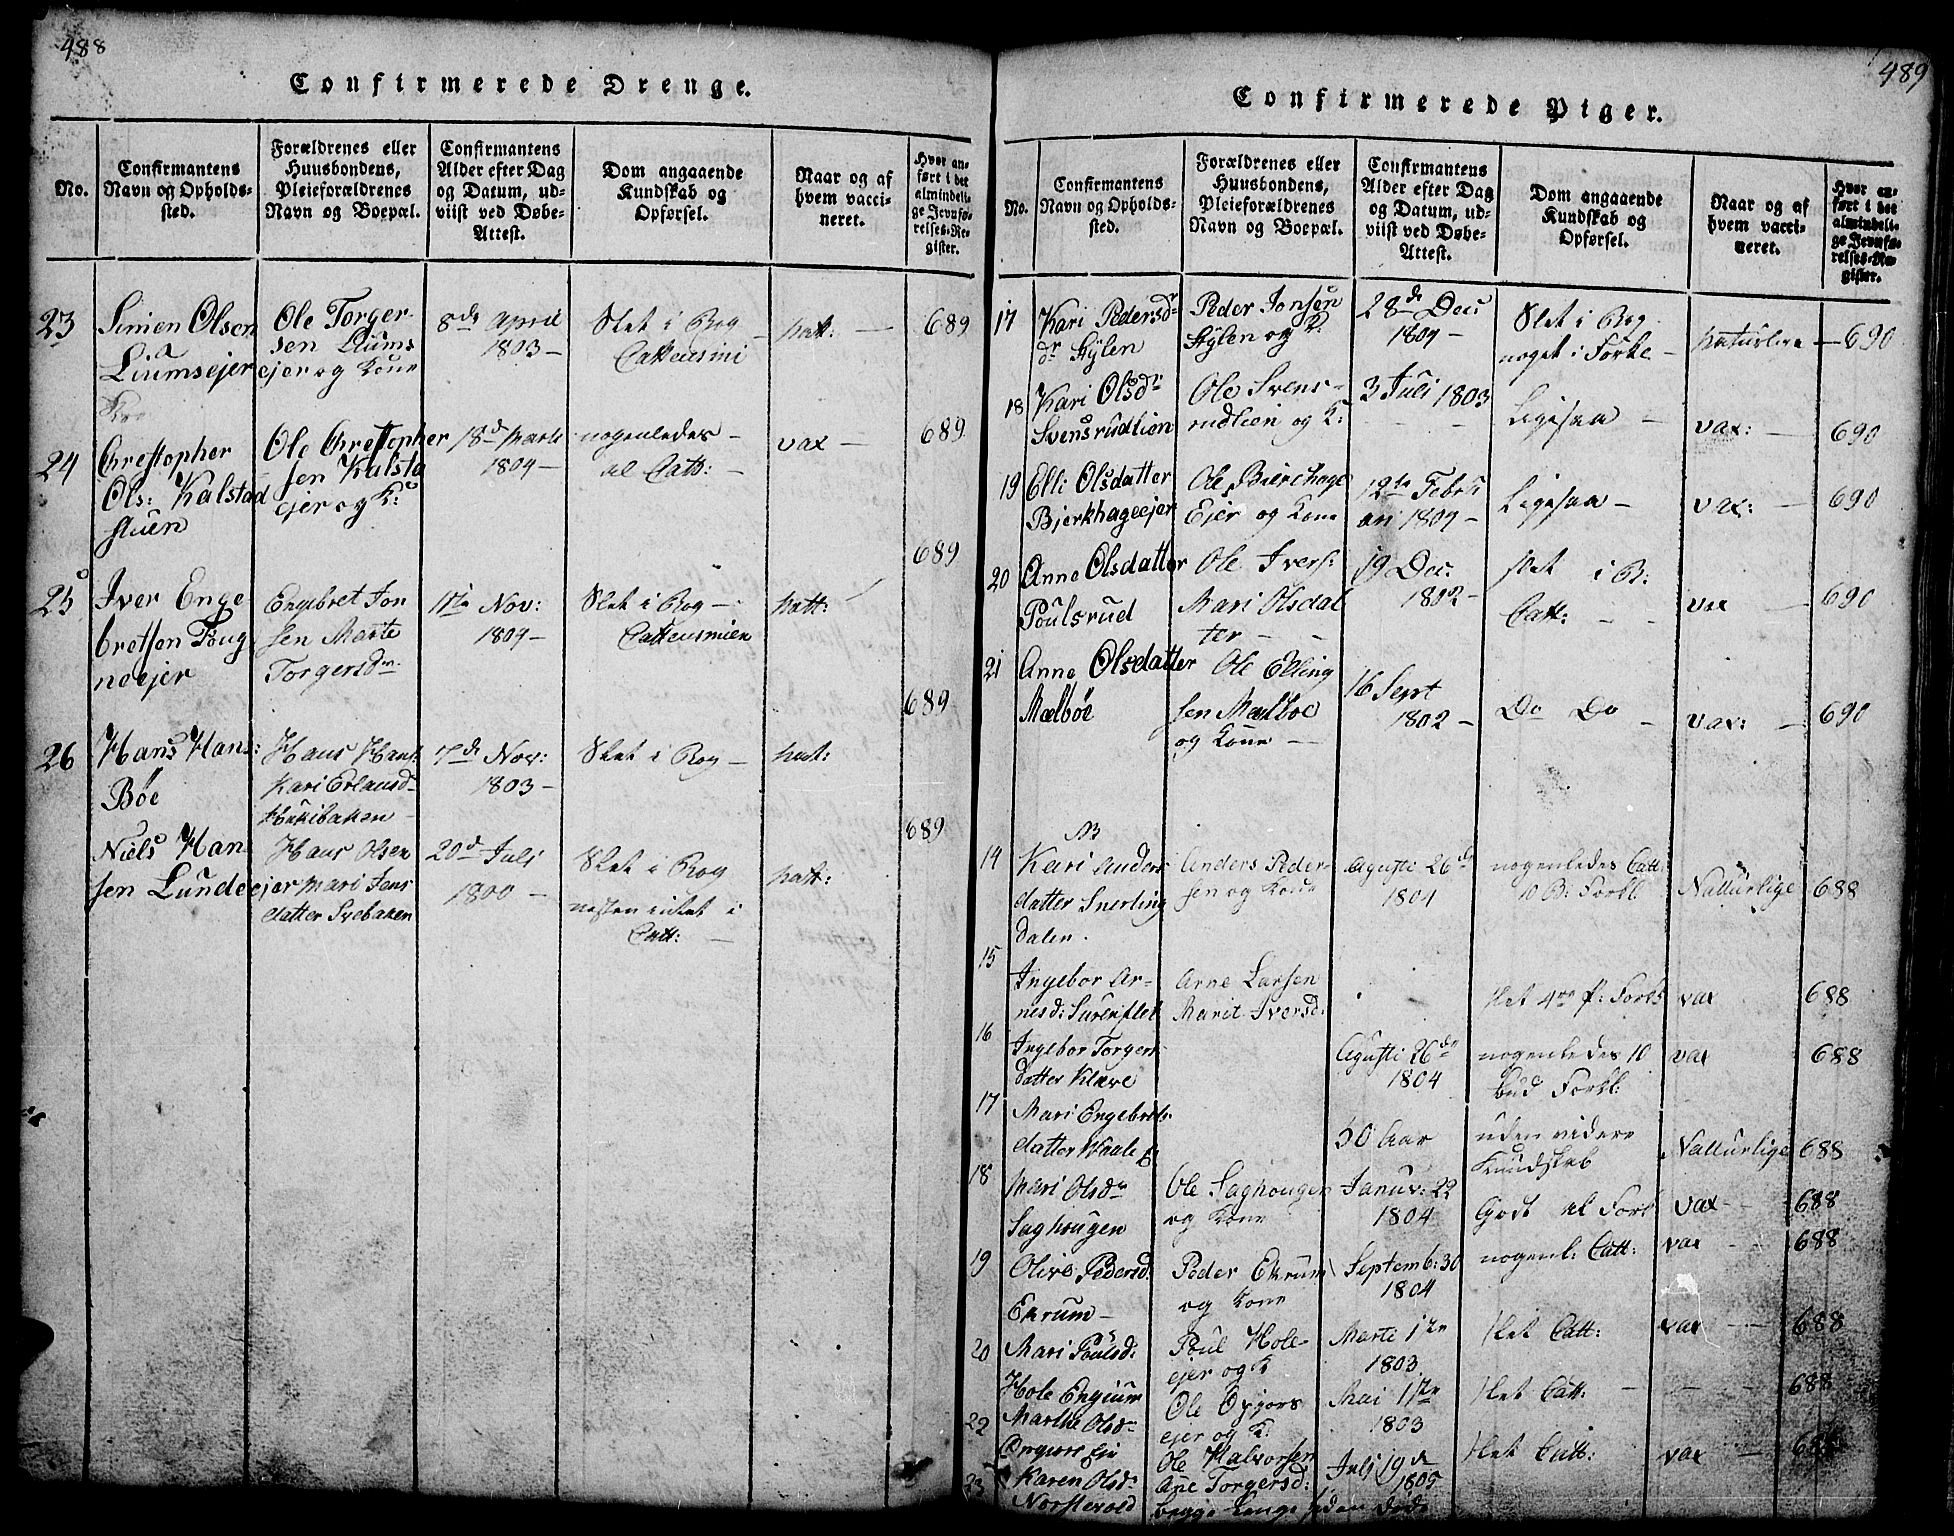 488
Confirmerede Drenge.
No.
Confirmantens
Navn og Opholds-
sted.
Forældrenes eller
Huusbondens,
Pleieforældrenes
Navn og Boepæl.
Confirmantens
Alder efter Dag
og Datum, ud-
viist ved Døbe-
Attest.
Dom angaaende
Kundskab og
Opførsel.
Naar og af
hvem vacci-
neret.
Hvor an-
ført i det
almindeli-
ge Jevnfø-
relses-Re-
gister.
23
Simen Olsen
Liumsejer
Ole Torger
sen Liums
ejer og Kone
8de April
1803 -
Slet i Bog
nat: -
689
24
Christopher
Ols: Kalstad
stuen
Ole Christopher
sen Kalsta
ejer og K:
18d Marti
1804 -
nogenledes -
al Catt: -
vax -
689
25
Iver Enge
bretsen Foug
neejer
Engebret Jon
sen Marte
Torgersdr
11te Nov:
1804 -
Slet i Bog -
natt:
689
26
Hans Hans:
Bøe
Hans Hans:
Kari Erlandsd
7de Nov:
1803 -
Slet i Bog -
natt:
689
Niels Han-
sen Lundeejer
Hans Olsen
Mari Jens
datter Svebaken
20d Juli
1800 -
Slet i Bog
nesten intet i
Catt: -
natt:
689
489
Confirmerede Piger.
No.
Confirmantens
Navn og Opholds-
sted.
Forældrenes eller
Huusbondens,
Pleieforældrenes
Navn og Boepæl.
Confirmantens
Alder efter Dag
og Datum, ud-
viist ved Døbe-
Attest.
Dom angaaende
Kundskab og
Opførsel.
Naar og af
hvem vacci-
neret.
Hvor an-
ført i det
almindeli-
ge Jevnfø-
relses-Re-
gister.
17
Kari Pedersd
Peder Jonsen
og K:
28de Dec:
1804 -
Slet i Bog
noget i Forkl -
Naturlige -
690
18
Kari Olsdr
Svensrudlien
Ole Svens-
rudlien og K:
3 Juli 1803
Ligesaa -
vax: -
690
19
Elli Olsdatter
Bjerkhageejer
Ole Bierchage
Ejer og Kone
12te Febru
ari 1804 -
Ligesaa -
vax: -
690
20
Anne Olsdatter
Poulsrud
Ole Ivers:
Mari Olsdat
ter - -
19 Dec:
1802 -
slet i B:
Catt: - -
vax -
690
21
Anne Olsdatter
Mælbøe
Ole Elling
sen Mælboe
og Kone -
16 Sept
1802 -
Do Do -
vax: -
690
NB
14
Kari Anders
datter Snerling
dalen.
Anders Peder-
sen og Kone
Agusti 26de
1804
nogenledes Catt:
10 B: Forkl
Natturlige
688
15
Ingebor Ar-
Arne Larsen
Marit Iversd:
slet 4re p: Forkl
vax
688
16
Ingebor Torgers
datter Klæve
Agusti 26de
1804
nogenledes 10
bud Forkl:
vax
688
17
Mari Engebrets
datter
30 Aar
uden videre
Kundskab
Natturlige
688
18
Mari Olsdr
Saghougen
Ole Saghougen
og Kone
Januv: 22
1804
Godt al Forkl
vax -
688
19
Olive Pedersd:
Ekrum -
Peder Ekrum
og Kone
Septemb: 30
1804
nogenl: Catt:
vax -
688
20
Mari Poulsd:
Hole Engium
Poul Hole-
ejer og K
Marti 1te
1803
slet Catt:
vax - -
688
22
Marthe Olsdr
Ole Opjors
ejer og K:
Mai 1ste
1803
slet Catt: - - -
688
23
Karen Olsdr
Norstevold
Ole Halvorsen
Ane Torgersd:
begge længe siden døde
Juli 19d
1805
slet Catt:
vax -
688